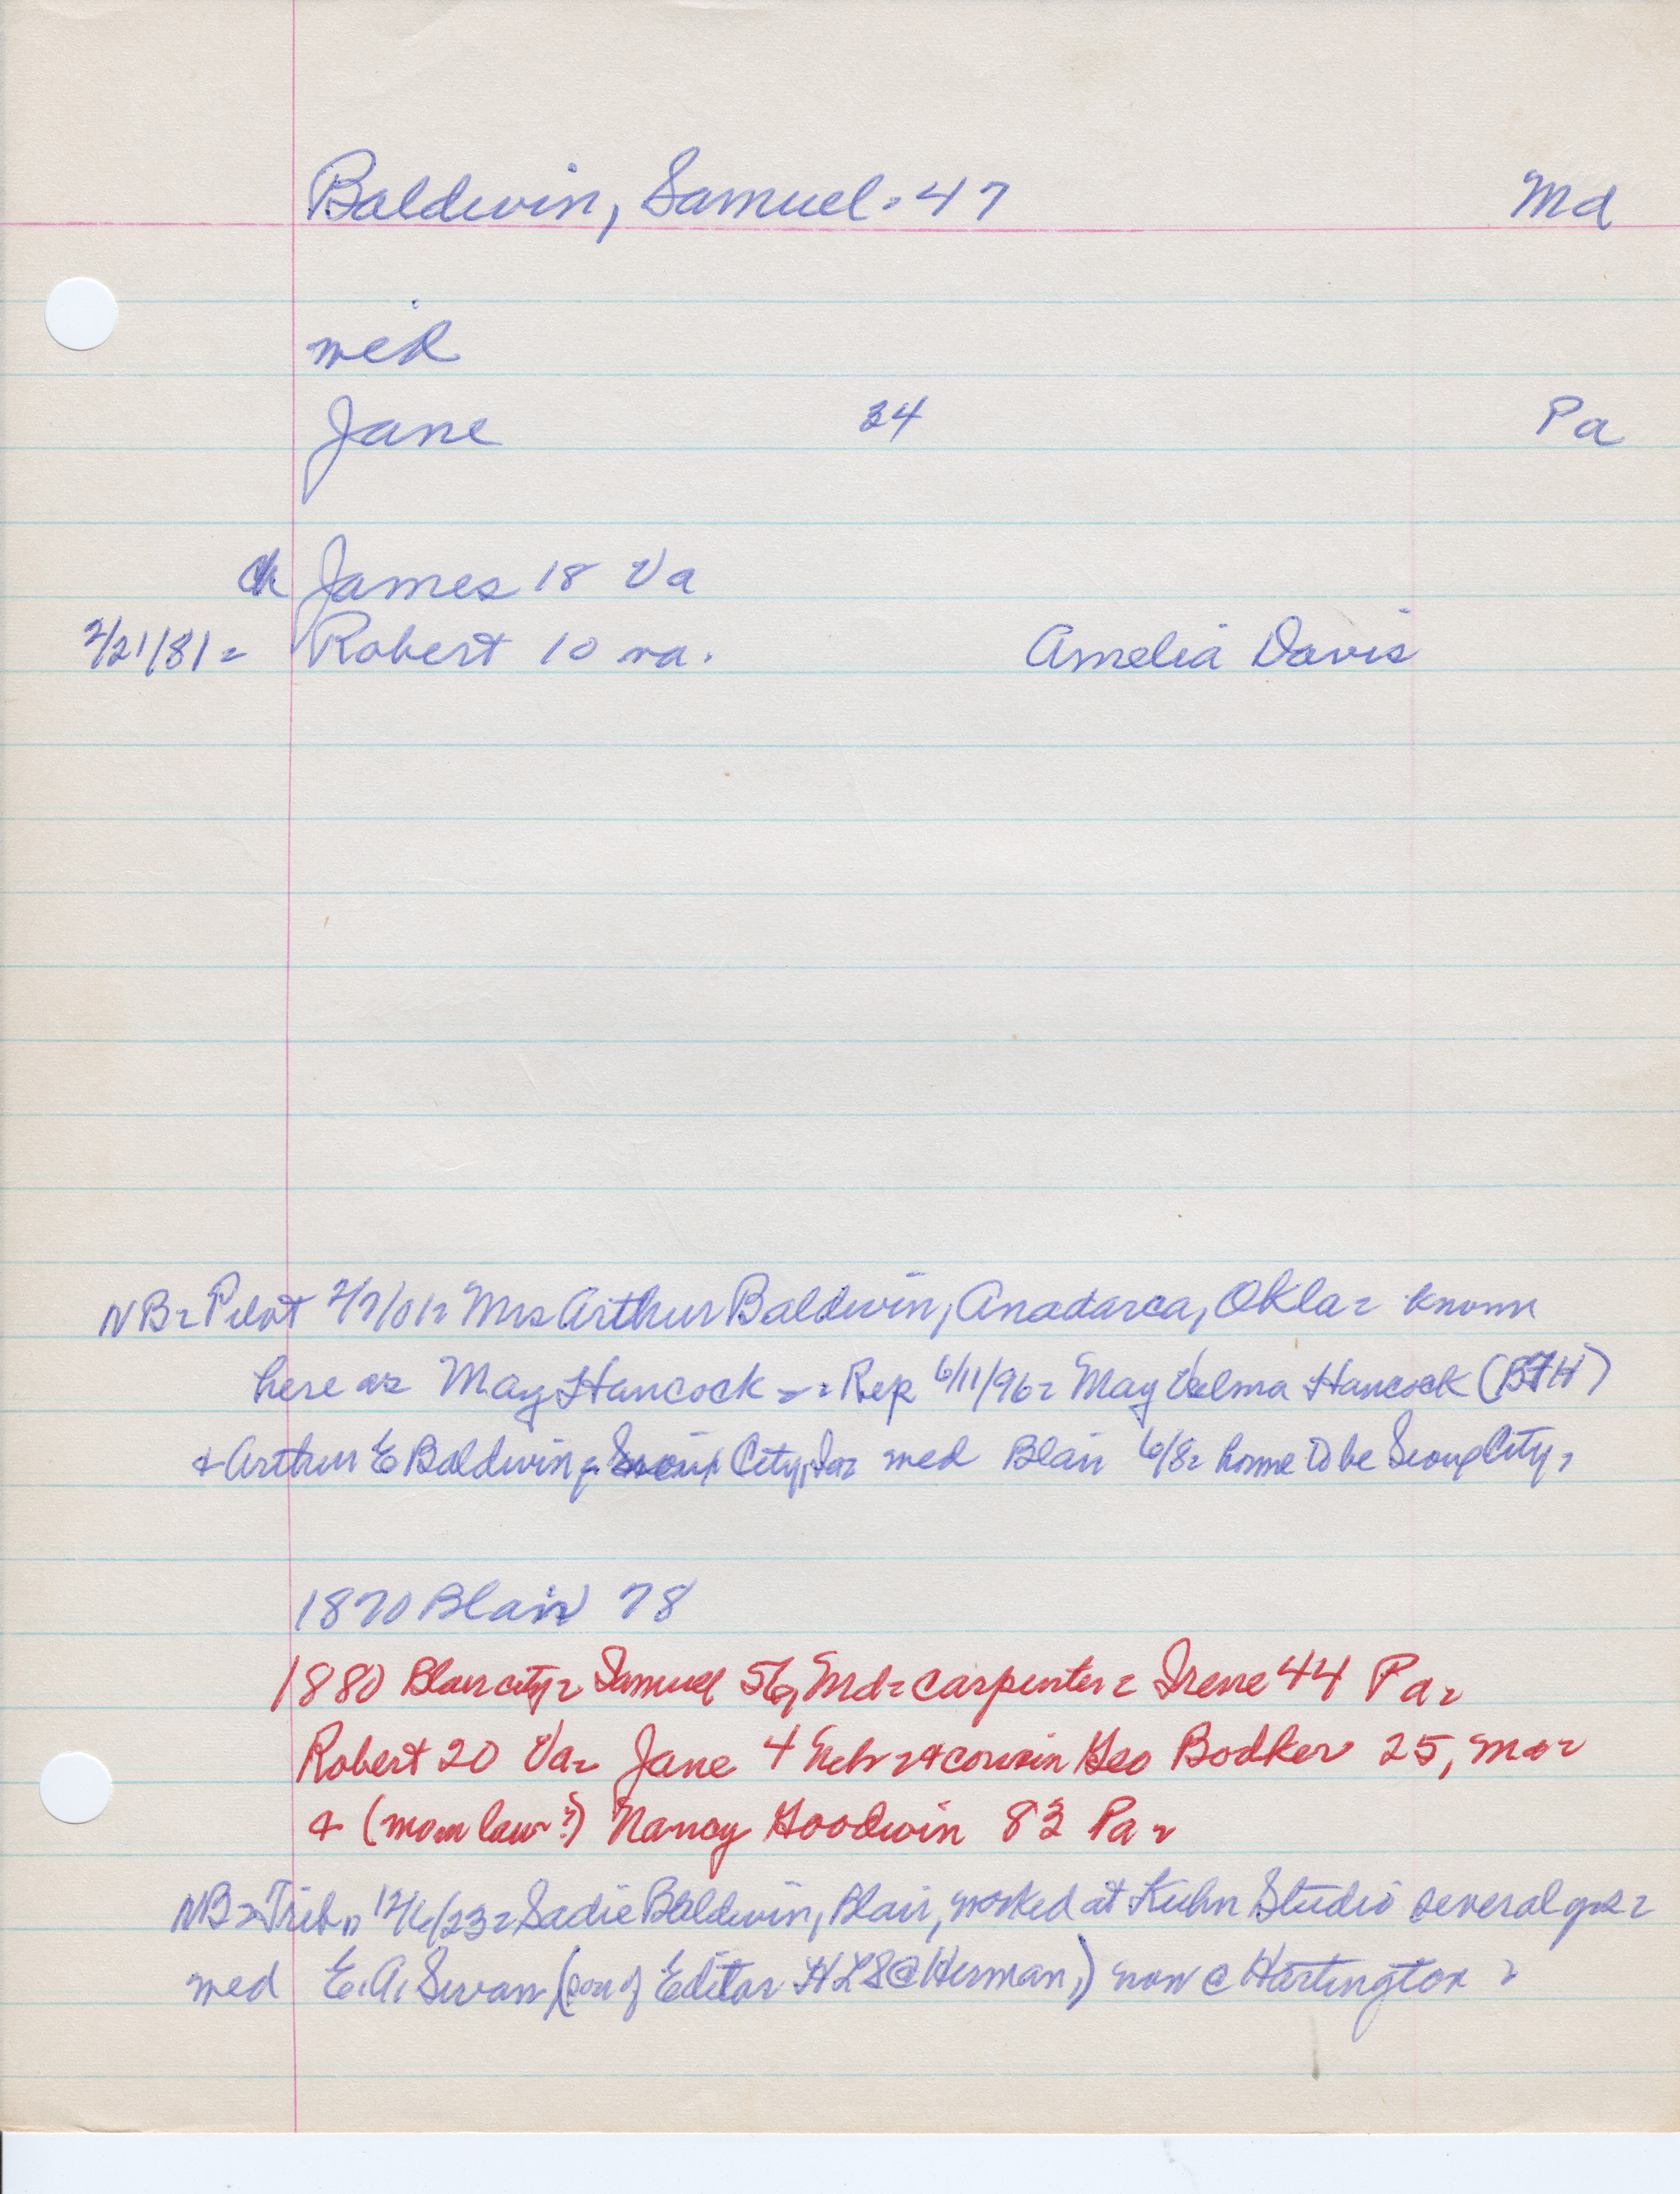 Baldwin, Samuel = 47 Md
med
Jane 34 Pa
ch James 18 Va
2/21/81 = Robert 10 va. Amelia Davis
NB = Pilot 2/7/01 = Mrs Arthur Baldwin, Anadarca, Okla = known
here as May Hancock = = Rep 6/11/96 = May Velma Hancock (BFH)
+ Arthur E Baldwin, Sioux City, Ia = med Blair 6/8 = home to be Sioux City,
1870 Blair 78
1880 Blair city = Samuel 56, Md = carpenter = Irene 44 Pa =
Robert 20 Va = Jane 4 Nebr = + cousin Geo Bodker 25, mo =
+ (mom law?) Nancy Goodwin 83 Pa =
NB = Trib, Sadie Baldwin, Blair, worked at Kuhn Studio several yrs =
med E. A. Swan (son of Editor HLS @ Herman,) now @ Hartington =